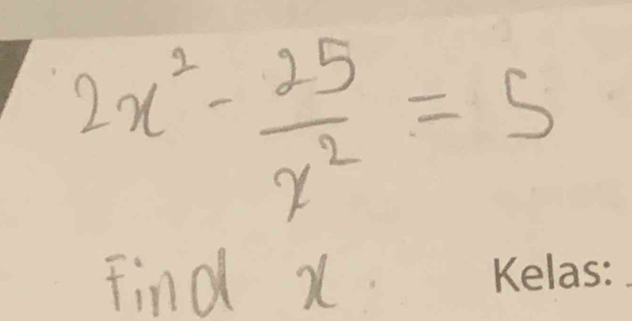 2x² - 25/x² = 5
Find x.
Kelas: